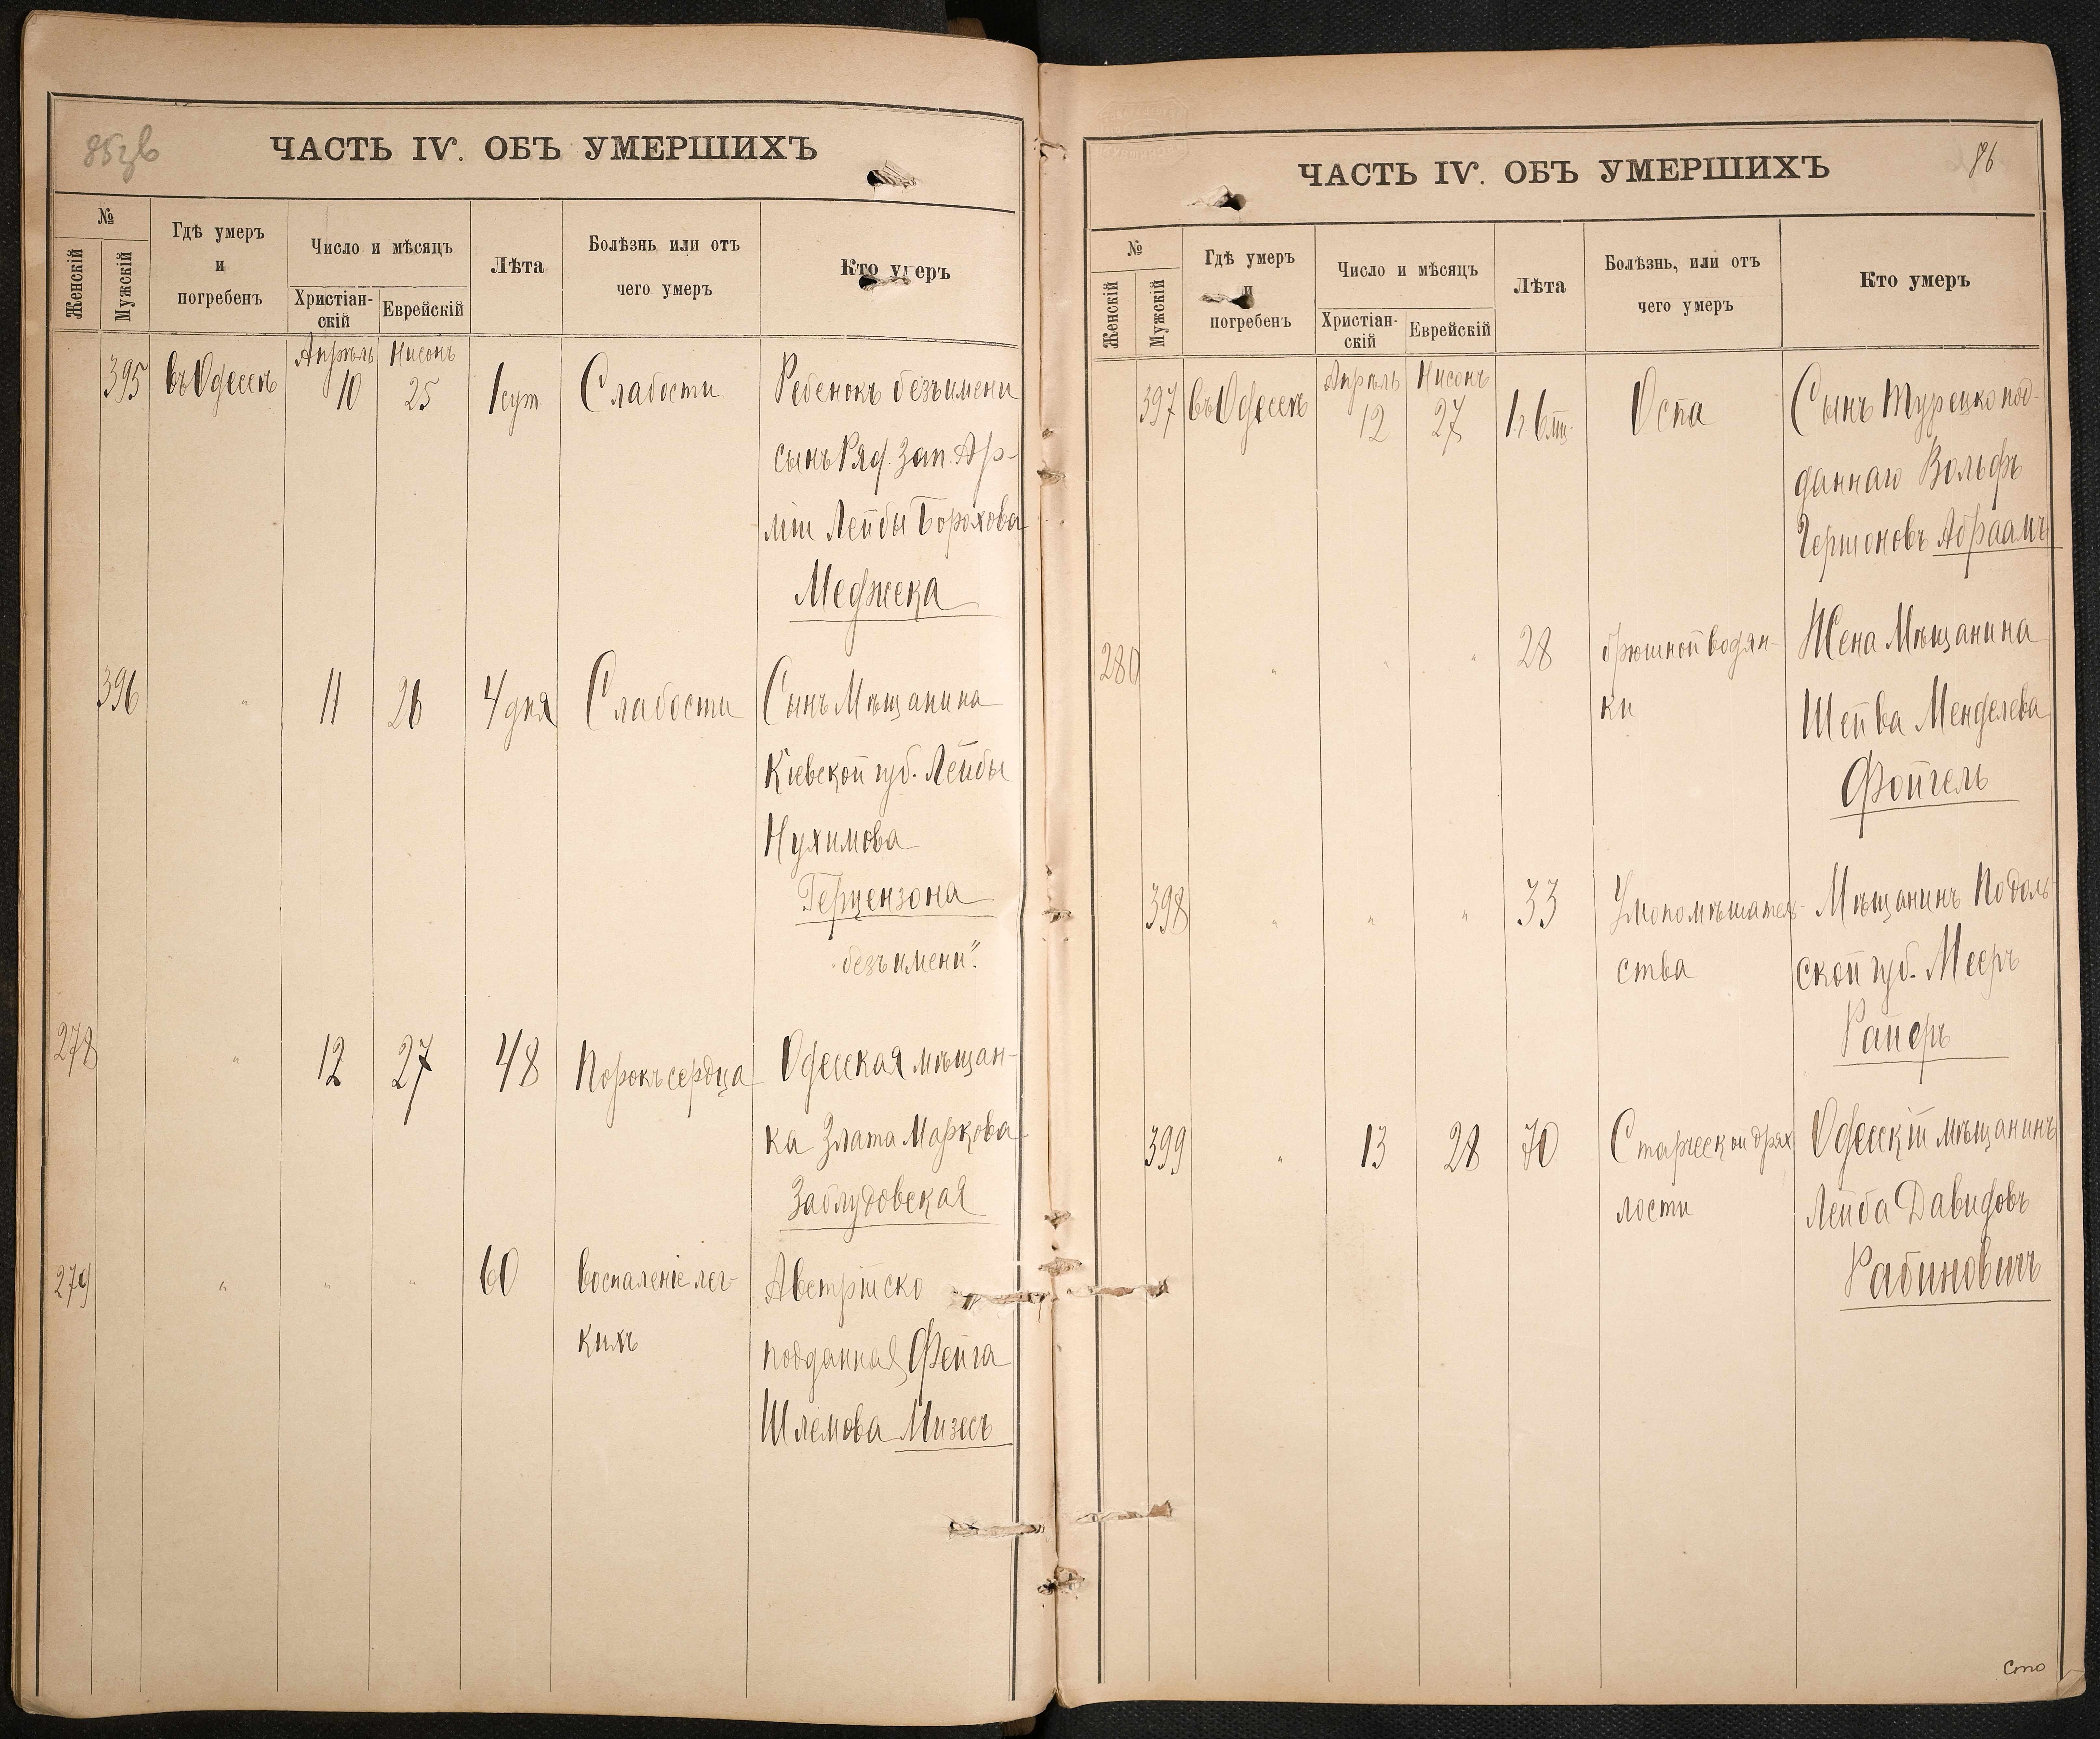 85 зв
ЧАСТЬ IV. ОБЪ УМЕРШИХЪ
№
Женскій
Мужскій
Гдѣ умеръ
и
погребенъ
Число и мѣсяцъ
Христіан-
скій
Еврейскій
Лѣта
Болѣзнь или отъ
чего умеръ
Кто умеръ
Апрѣль Нисонъ
395 въ Одессѣ 10 25 1 сут. Слабости Ребенокъ безъимени
сынъ Ряд. Зап. Ар-
міи Лейбы Борохова
Меджека
396 " 11 26 4 дня Слабости Сынъ Мѣщанина
Кіевской губ. Лейбы
Нухимова
Герцензона
"безъ имени".
278 " 12 27 48 Порокъ сердца Одесская мѣщан-
ка Злата Маркова
Заблудовская
279 " " " 60 воспаленіе лег- Австрійско
кихъ подданная Фейга
Шлемова Мизесъ
86
ЧАСТЬ IV. ОБЪ УМЕРШИХЪ
№
Женскій
Мужскій
Гдѣ умеръ
и
погребенъ
Число и мѣсяцъ
Христіан-
скій
Еврейскій
Лѣта
Болѣзнь, или отъ
чего умеръ
Кто умеръ
Апрѣль Нисонъ
397 въ Одессѣ 12 27 1 г 6 мц. Оспа Сынъ Турецко под-
даннаго Вольфъ
Гершоновъ Абраамъ
280 " " " 28 брюшной водян- Жена Мѣщанина
ки Шейва Менделева
Фойгель
398 " " " 33 Умопомѣшатель- Мѣщанинъ Подоль
ства ской губ. Мееръ
Раперъ
399 " 13 28 70 Старческой дрях Одесскій мѣщанинъ
лости Лейба Давидовъ
Рабиновичъ
Сто